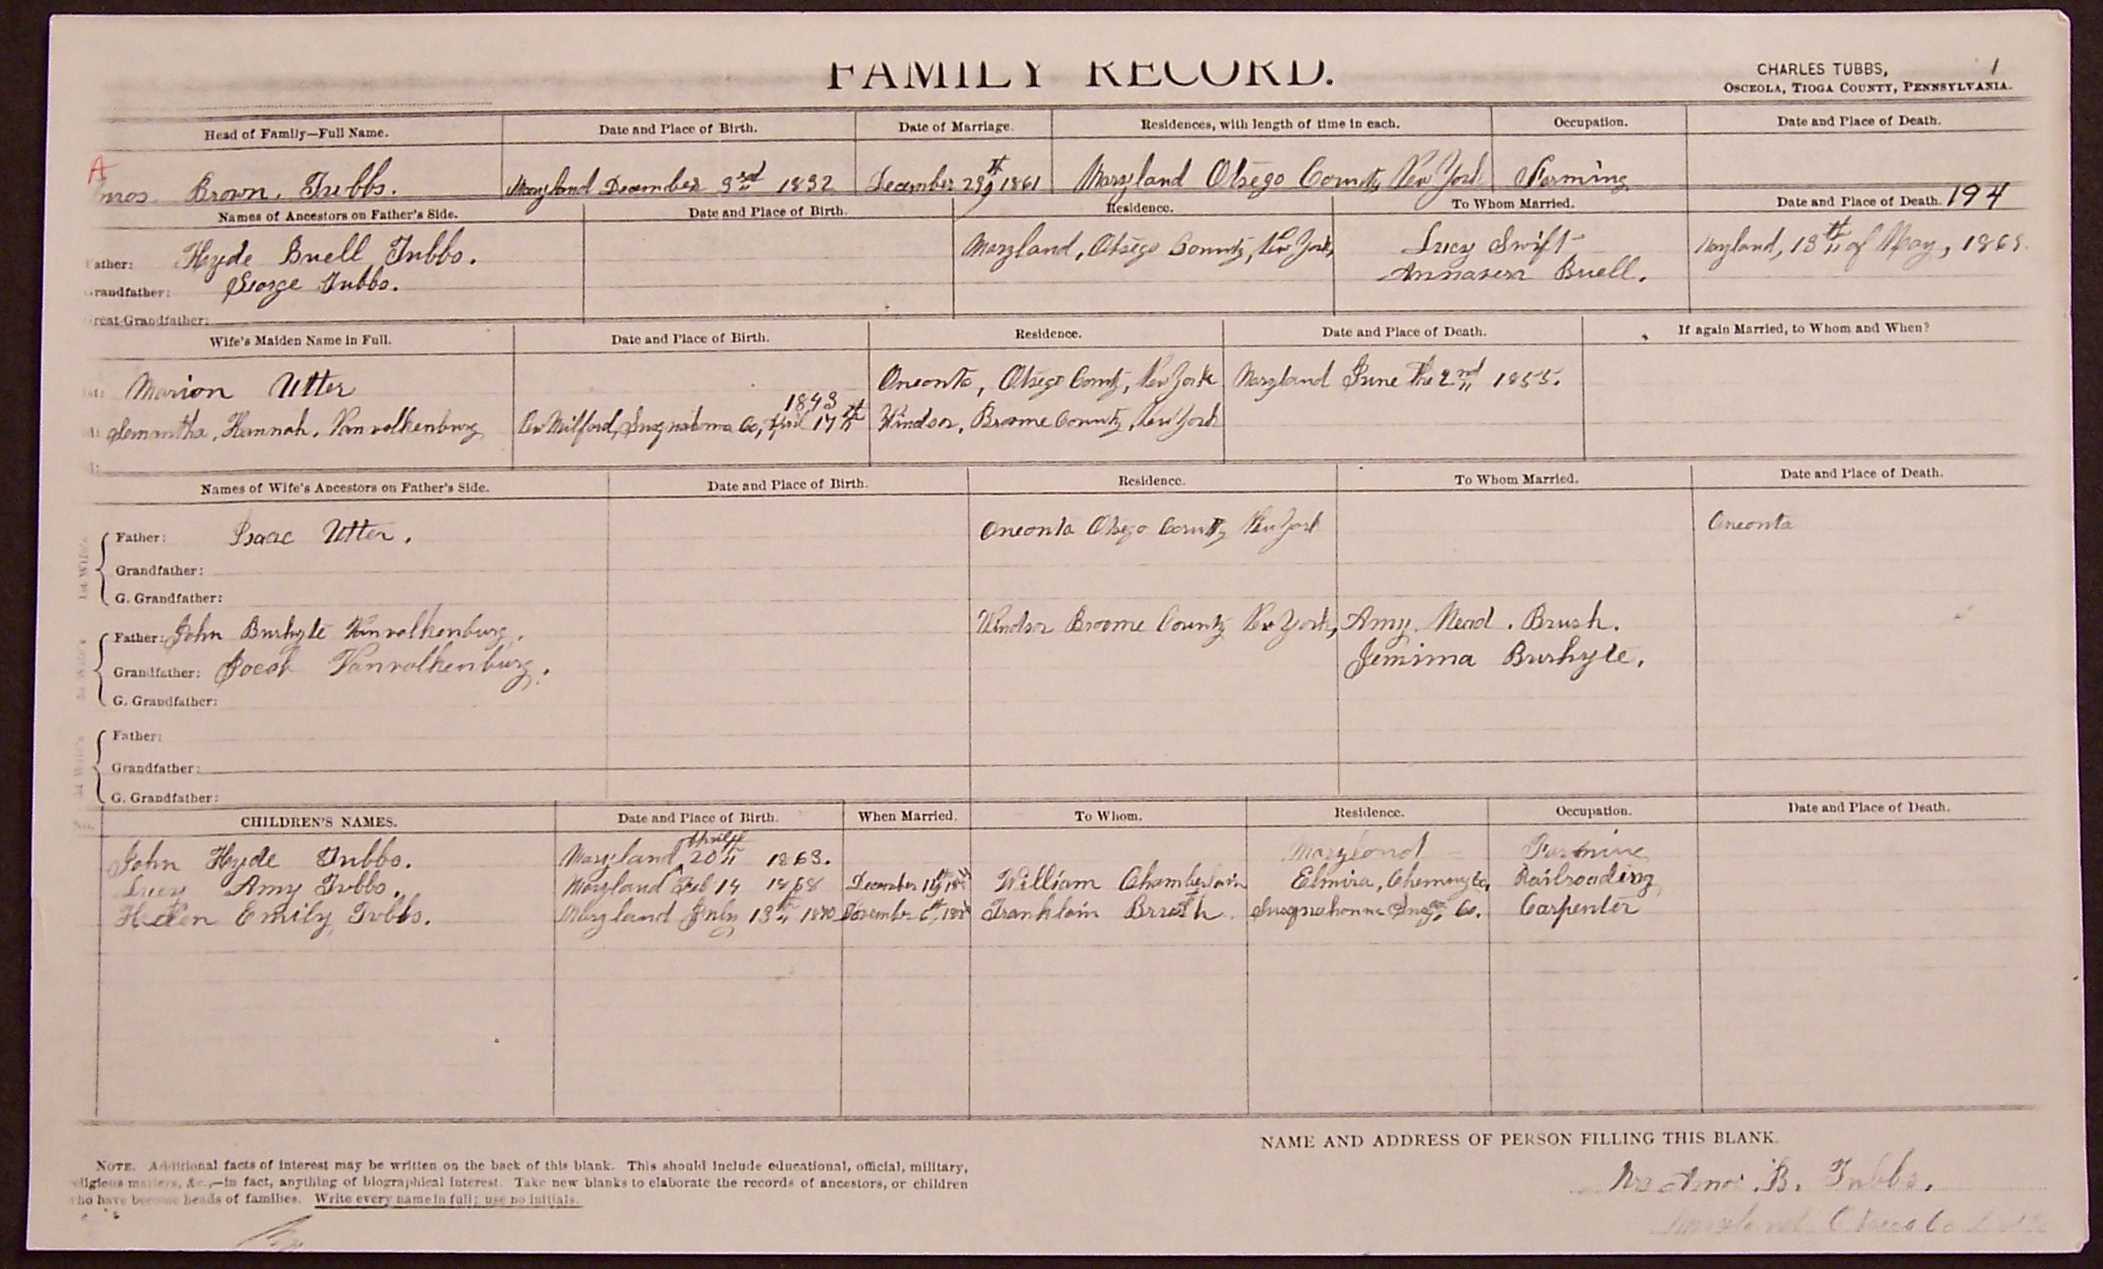 FAMILY RECORD.
CHARLES TUBBS, 1
OSCEOLA, TIOGA COUNTY, PENNSYLVANIA.
Head of Family—Full Name. Date and Place of Birth. Date of Marriage. Residences, with length of time in each. Occupation. Date and Place of Death.
A
mos Brown. Tubbs. Maryland December 3rd 1832 December 29th 1861 Maryland Otsego County New York Farming
194
Names of Ancestors on Father's Side. Date and Place of Birth. Residence. To Whom Married. Date and Place of Death.
ather: Hyde Buell Tubbs. Maryland, Otsego County, New York, Lucy Swift Maryland, 13th of May,
randfather: George Tubbs. Buell.
reat-Grandfather:
Wife's Maiden Name in Full. Date and Place of Birth. Residence. Date and Place of Death. If again Married, to Whom and When?
Marion Utter Oneonta, Otsego County, New York Maryland June the 2nd 1855.
1843
Semantha, Hannah, Vanvolkenburg New Milford, Susquehanna Co, April 17th Windsor, Broome County, New York
Names of Wife's Ancestors on Father's Side. Date and Place of Birth. Residence. To Whom Married. Date and Place of Death.
1st Wife's
Father: Isaac Utter. Oneonta Otsego County New York Oneonta
Grandfather:
G. Grandfather:
Father: John Burhyte Vanvolkenburg. Windsor Broome County New York, Amy. Mead. Brush.
Grandfather: Jocob Vanvolkenburg. Jemima Burhyte.
G. Grandfather:
Father:
Grandfather:
G. Grandfather:
No. CHILDREN'S NAMES. Date and Place of Birth. When Married. To Whom. Residence. Occupation. Date and Place of Death.
John Hyde Tubbs. Maryland, 20th 1863. Maryland Farming
Lucy Amy Tubbs. Maryland Feb 14 1868 December William Chamberlain Elmira, Chemung Co, Railroading
Hellen Emily Tubbs. Maryland July 13th 1870 December 6th, Franklain Brush. Susquehanna Susq. Co. Carpenter
NAME AND ADDRESS OF PERSON FILLING THIS BLANK.
NOTE. Additional facts of interest may be written on the back of this blank. This should include educational, official, military,
eligious matters, &c.,—in fact, anything of biographical interest. Take new blanks to elaborate the records of ancestors, or children
ho have become heads of families. Write every name in full; use no initials.
Mrs Amos B. Tubbs.
Maryland Otsego Co